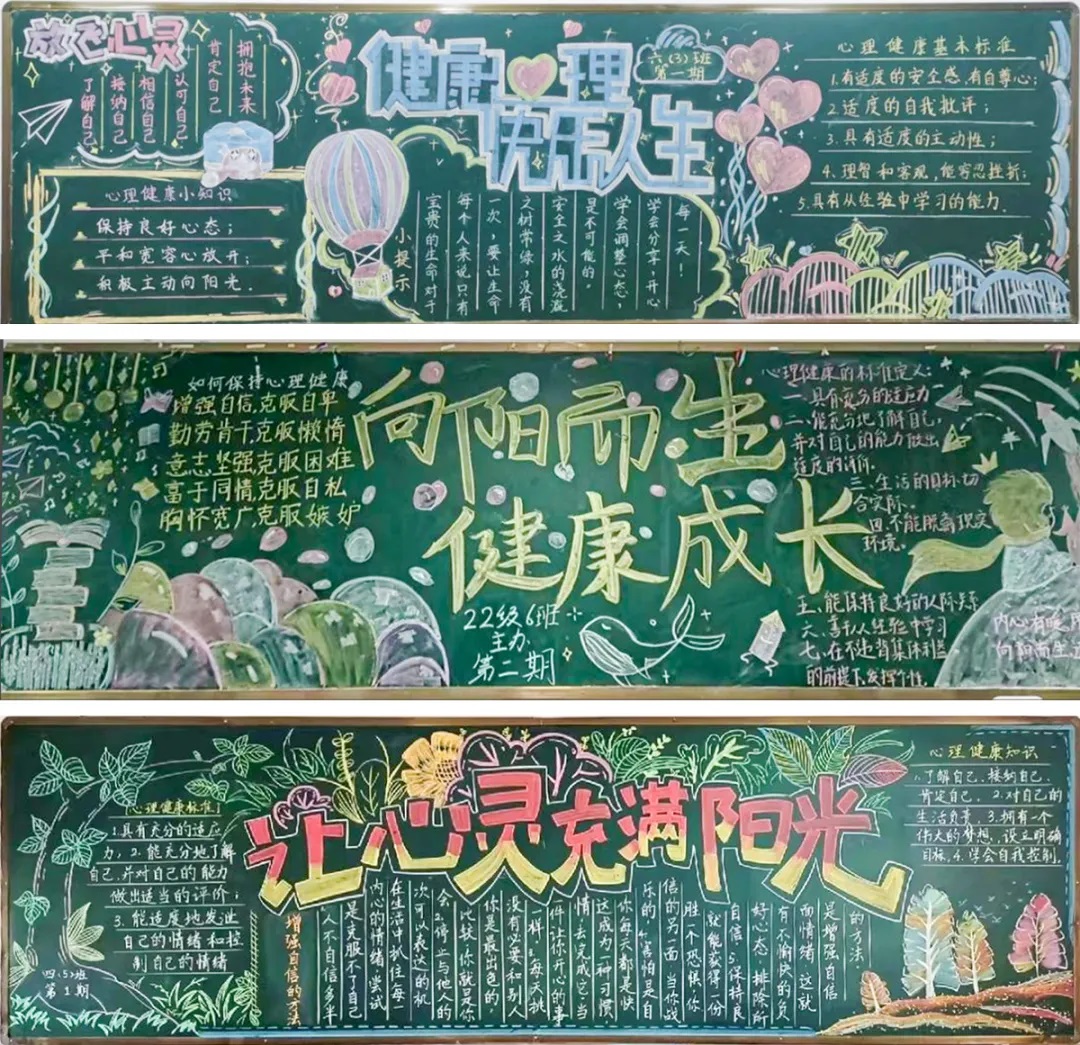 放飞心灵
拥抱未来
肯定自己
认可自己
相信自己
接纳自己
了解自己
心理健康小知识
保持良好心态；
平和宽容心放开；
积极主动向阳光．
健康 理
快乐人生
六（3）班
第一期
小提示
宝贵的生命对于
每个人来说只有
一次，要让生命
之树常绿，没有
安全之水的浇溉
是不可能的。
学会调整心态，
学会分享，开心
每一天！
心理健康基本标准
1.有适度的安全感，有自尊心；
2.适度的自我批评；
3.具有适度的主动性；
4.理智和客观，能容忍挫折；
5.具有从经验中学习的能力．
如何保持心理健康
增强自信克服自卑
勤劳肯干克服懒惰
意志坚强克服困难
高于同情克服自私
胸怀宽广克服嫉妒
向阳而生
健康成长
22级6班
主办
第二期
心理健康的标准定义：
一、具有充分的适应力
二、能充分地了解自己，
并对自己的能力做出
适度的评价．
三、生活的目标切
合实际．
四、不能脱离现实
环境。
五、能保持良好的人际关系
六、善于从经验中学习
七、在不违背集体利益
的前提下，发挥个性．
内心有暖阳
向阳而生
让心灵充满阳光
心理健康标准：
1.具有充分的适应
力，2.能充分地了解
自己，并对自己的能力
做出适当的评价；
3.能适度地发泄
自己的情绪和控
制自己的情绪
四.5)班
第1期
增强自信的方法
人不自信多半
是克服不了自己
内心的情绪，尝试
在生活中抓住每一
次可以表达的机
会．2.停止与他人的
比较．你就是你
你是最出色的，
没有必要和别人
一样．3.每天挑
件让你开心的事
情去完成它．当
达成为一种习惯，
你每天都是快
乐的．4.害怕是自
信的另一面，当你战
胜一个恐惧，你
就能获得一份
自信．5.保持良
好心态，排除所
有不愉快的负
面情绪，这就
是增强自信
的方法
心理健康知识
1.了解自己、接纳自己、
肯定自己，2.对自己的
生活负责，3.拥有一个
伟大的梦想，设立明确
目标．4.学会自我控制．